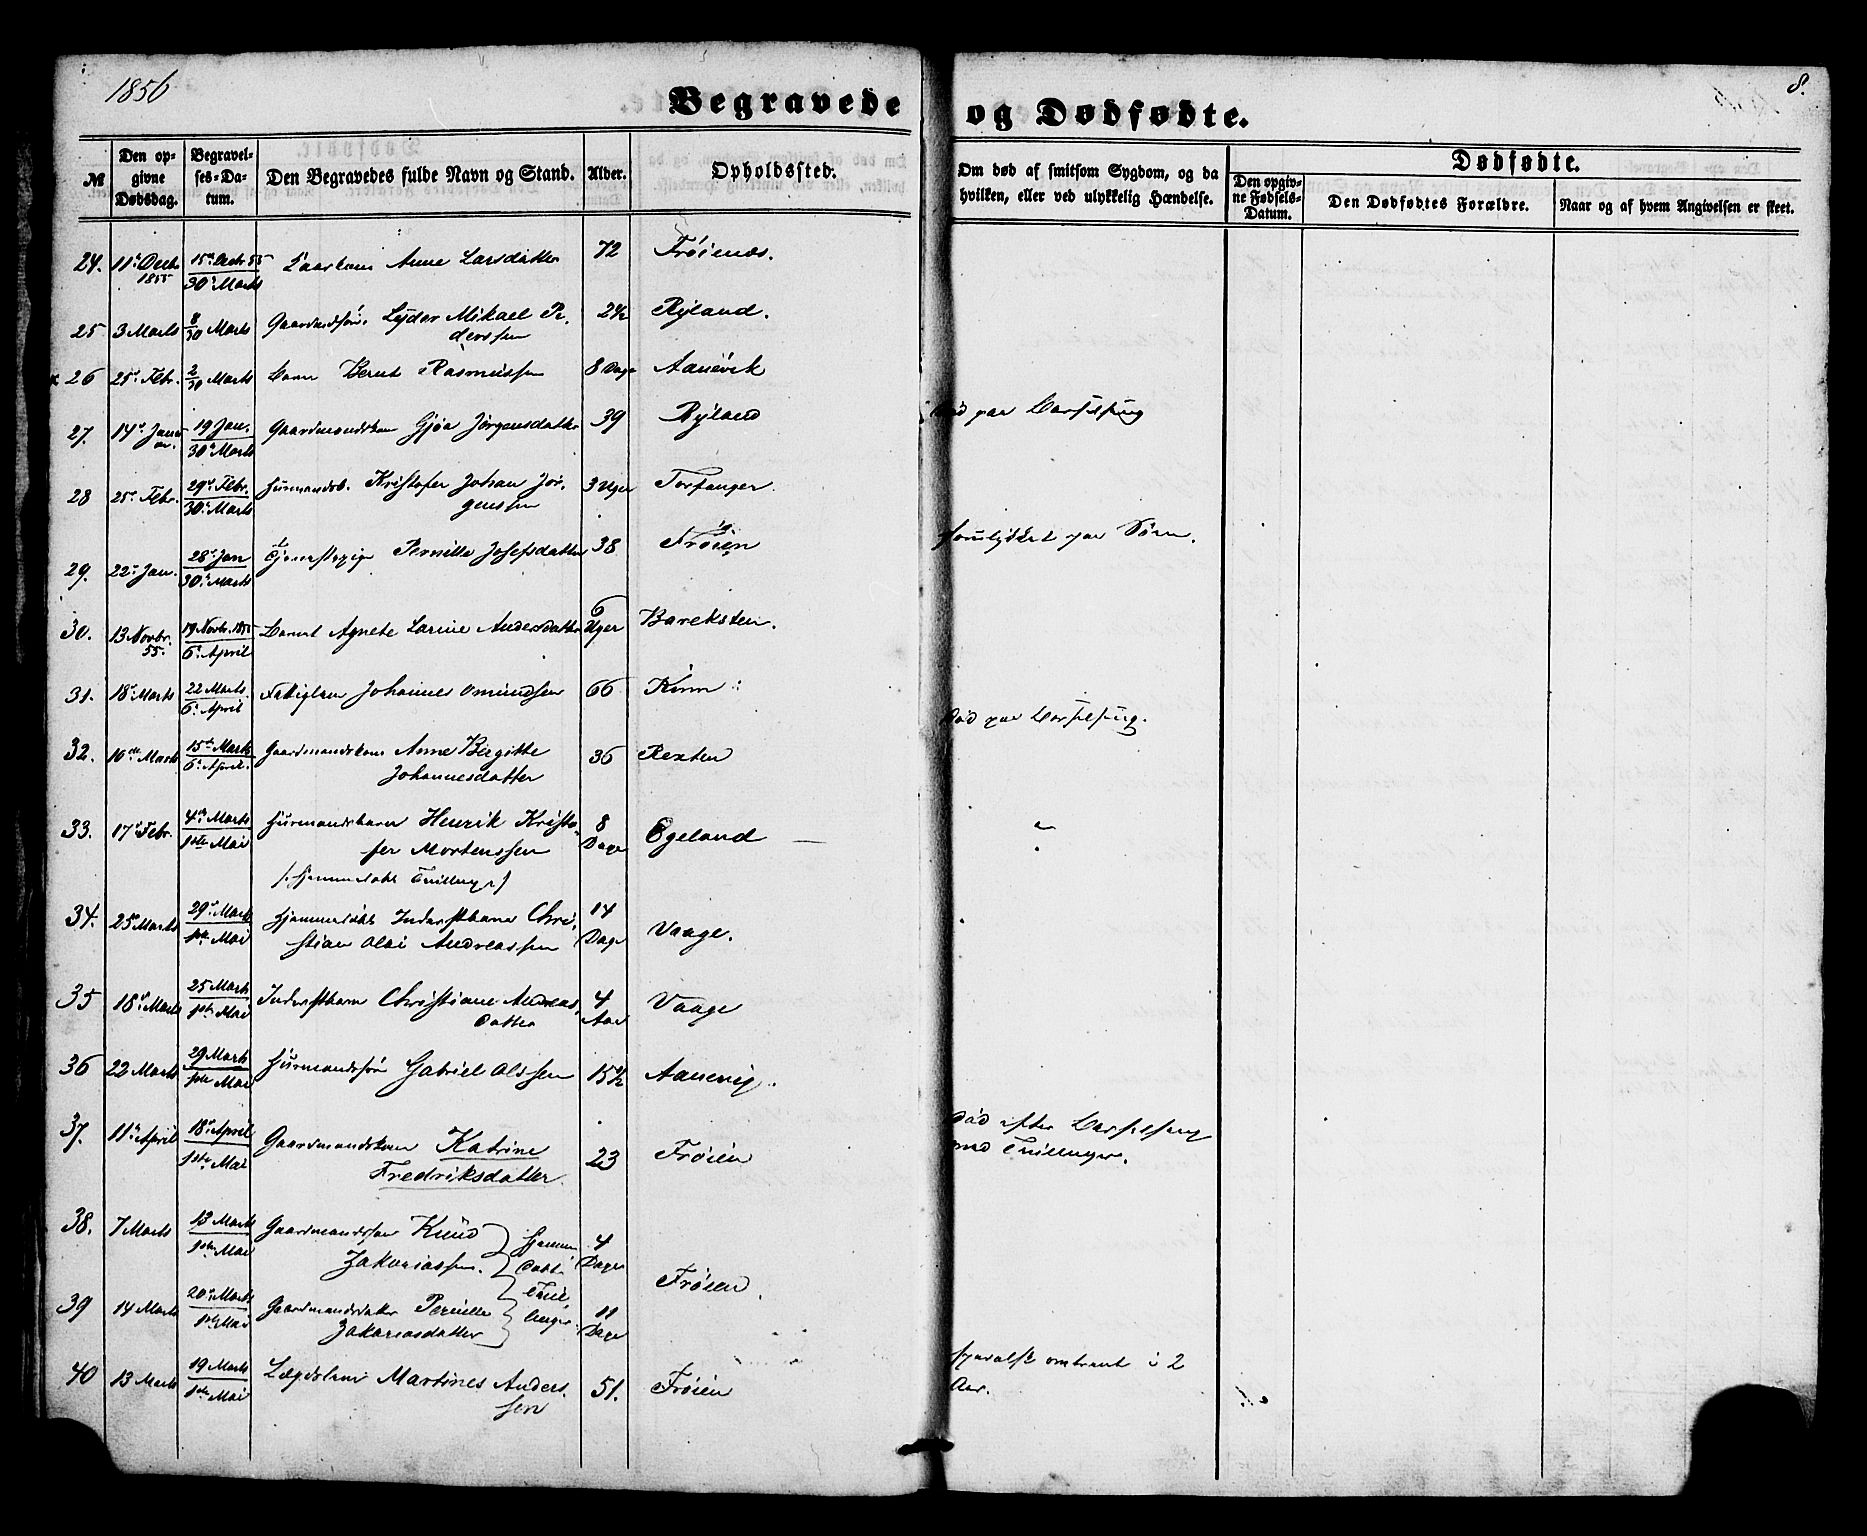 1856
8.
Begravede og Dødfødte.
№
Den opgivne Dødsdag.
Begravelses-Datum.
Den Begravedes fulde Navn og Stand.
Alder.
Opholdssted.
Om død af smitsom Sygdom, og da hvilken, eller ved ulykkelig Hændelse.
Dødfødte.
Den opgivne Fødsels-Datum.
Den Dødfødtes Forældre.
Naar og af hvem Angivelsen er skeet.
24. 11te Decbr 1855 15de Decbr 55 / 30te Marts Anne Larsdatter 72 Frøienæs.
25 3 Marts 8/30 Marts Gaardmandssøn Lyder Mikael Pederssen 2½ Ryland.
26 25de Febr. 2/30 Marts Barn Bernt Rasmussen 8 Dage Aanevik
27. 14de Januar. 19 Jan. / 30te Marts Gaardmandskone Gjøa Jørgensdatter 39 Ryland Død paa Barselseng
28 25de Febr. 29de Febr. / 30te Marts Huusmandsb. Kristofer Johan Jørgenssen 3 Uger Torfanger
29. 22de Jan. 28de Jan / 30te Marts Tjenestepige Pernille Josefsdatter 38 Frøien forulykket paa Søen.
30. 13 Novbr. 55. 19 Novbr. 1855 / 6te April Barnet Agnete Larine Andersdatter 6 Uger Bareksten.
31. 18de Marts 22 Marts / 6te April Fattiglem Johannes Omundsen 66 Kinn
32. 10de Marts 15de Marts / 6te April. Gaardmandskone Anne Birgitte Johannesdatter 36 Rexten Død paa Barselseng.
33. 17de Febr. 4de Marts / 1ste Mai Huusmandsbarn Henrik Kristofer Mortenssen 8 Dage Egeland
/: hjemmedøbt Tvilling :/
34. 25de Marts 29de Marts / 1ste Mai Hjemmedøbt Inderstbarn Christian Olai Andreassen 14 Dage Vaage.
35 18de Marts 25 Marts / 1ste Mai Inderstbarn Christiane Andreasdatter 4 Aar Vaage
36 22 Marts 29 Marts / 1ste Mai Huusmandssøn Gabriel Olssen 15½ Aanevig.
37. 11te April 18de April / 1ste Mai Gaardmandskone Katrine Fredriksdatter. 23 Frøien Død efter Barselseng med Tvillinger.
38. 7 Marts 13 Marts / 1ste Mai Gaardmandssøn Knud Zakariassen. 4 Dage
Hjemmedøbte Tvillinger. Frøien.
39 14 Marts 20de Marts / 1ste Mai Gaardmandsdatter Pernille Zakariasdatter 11 Dage
40 13 Marts 19 Marts / 1ste Mai Lægdslem Martines Anderssen 51. Frøien spedalsk omtrent i 2 Aar.